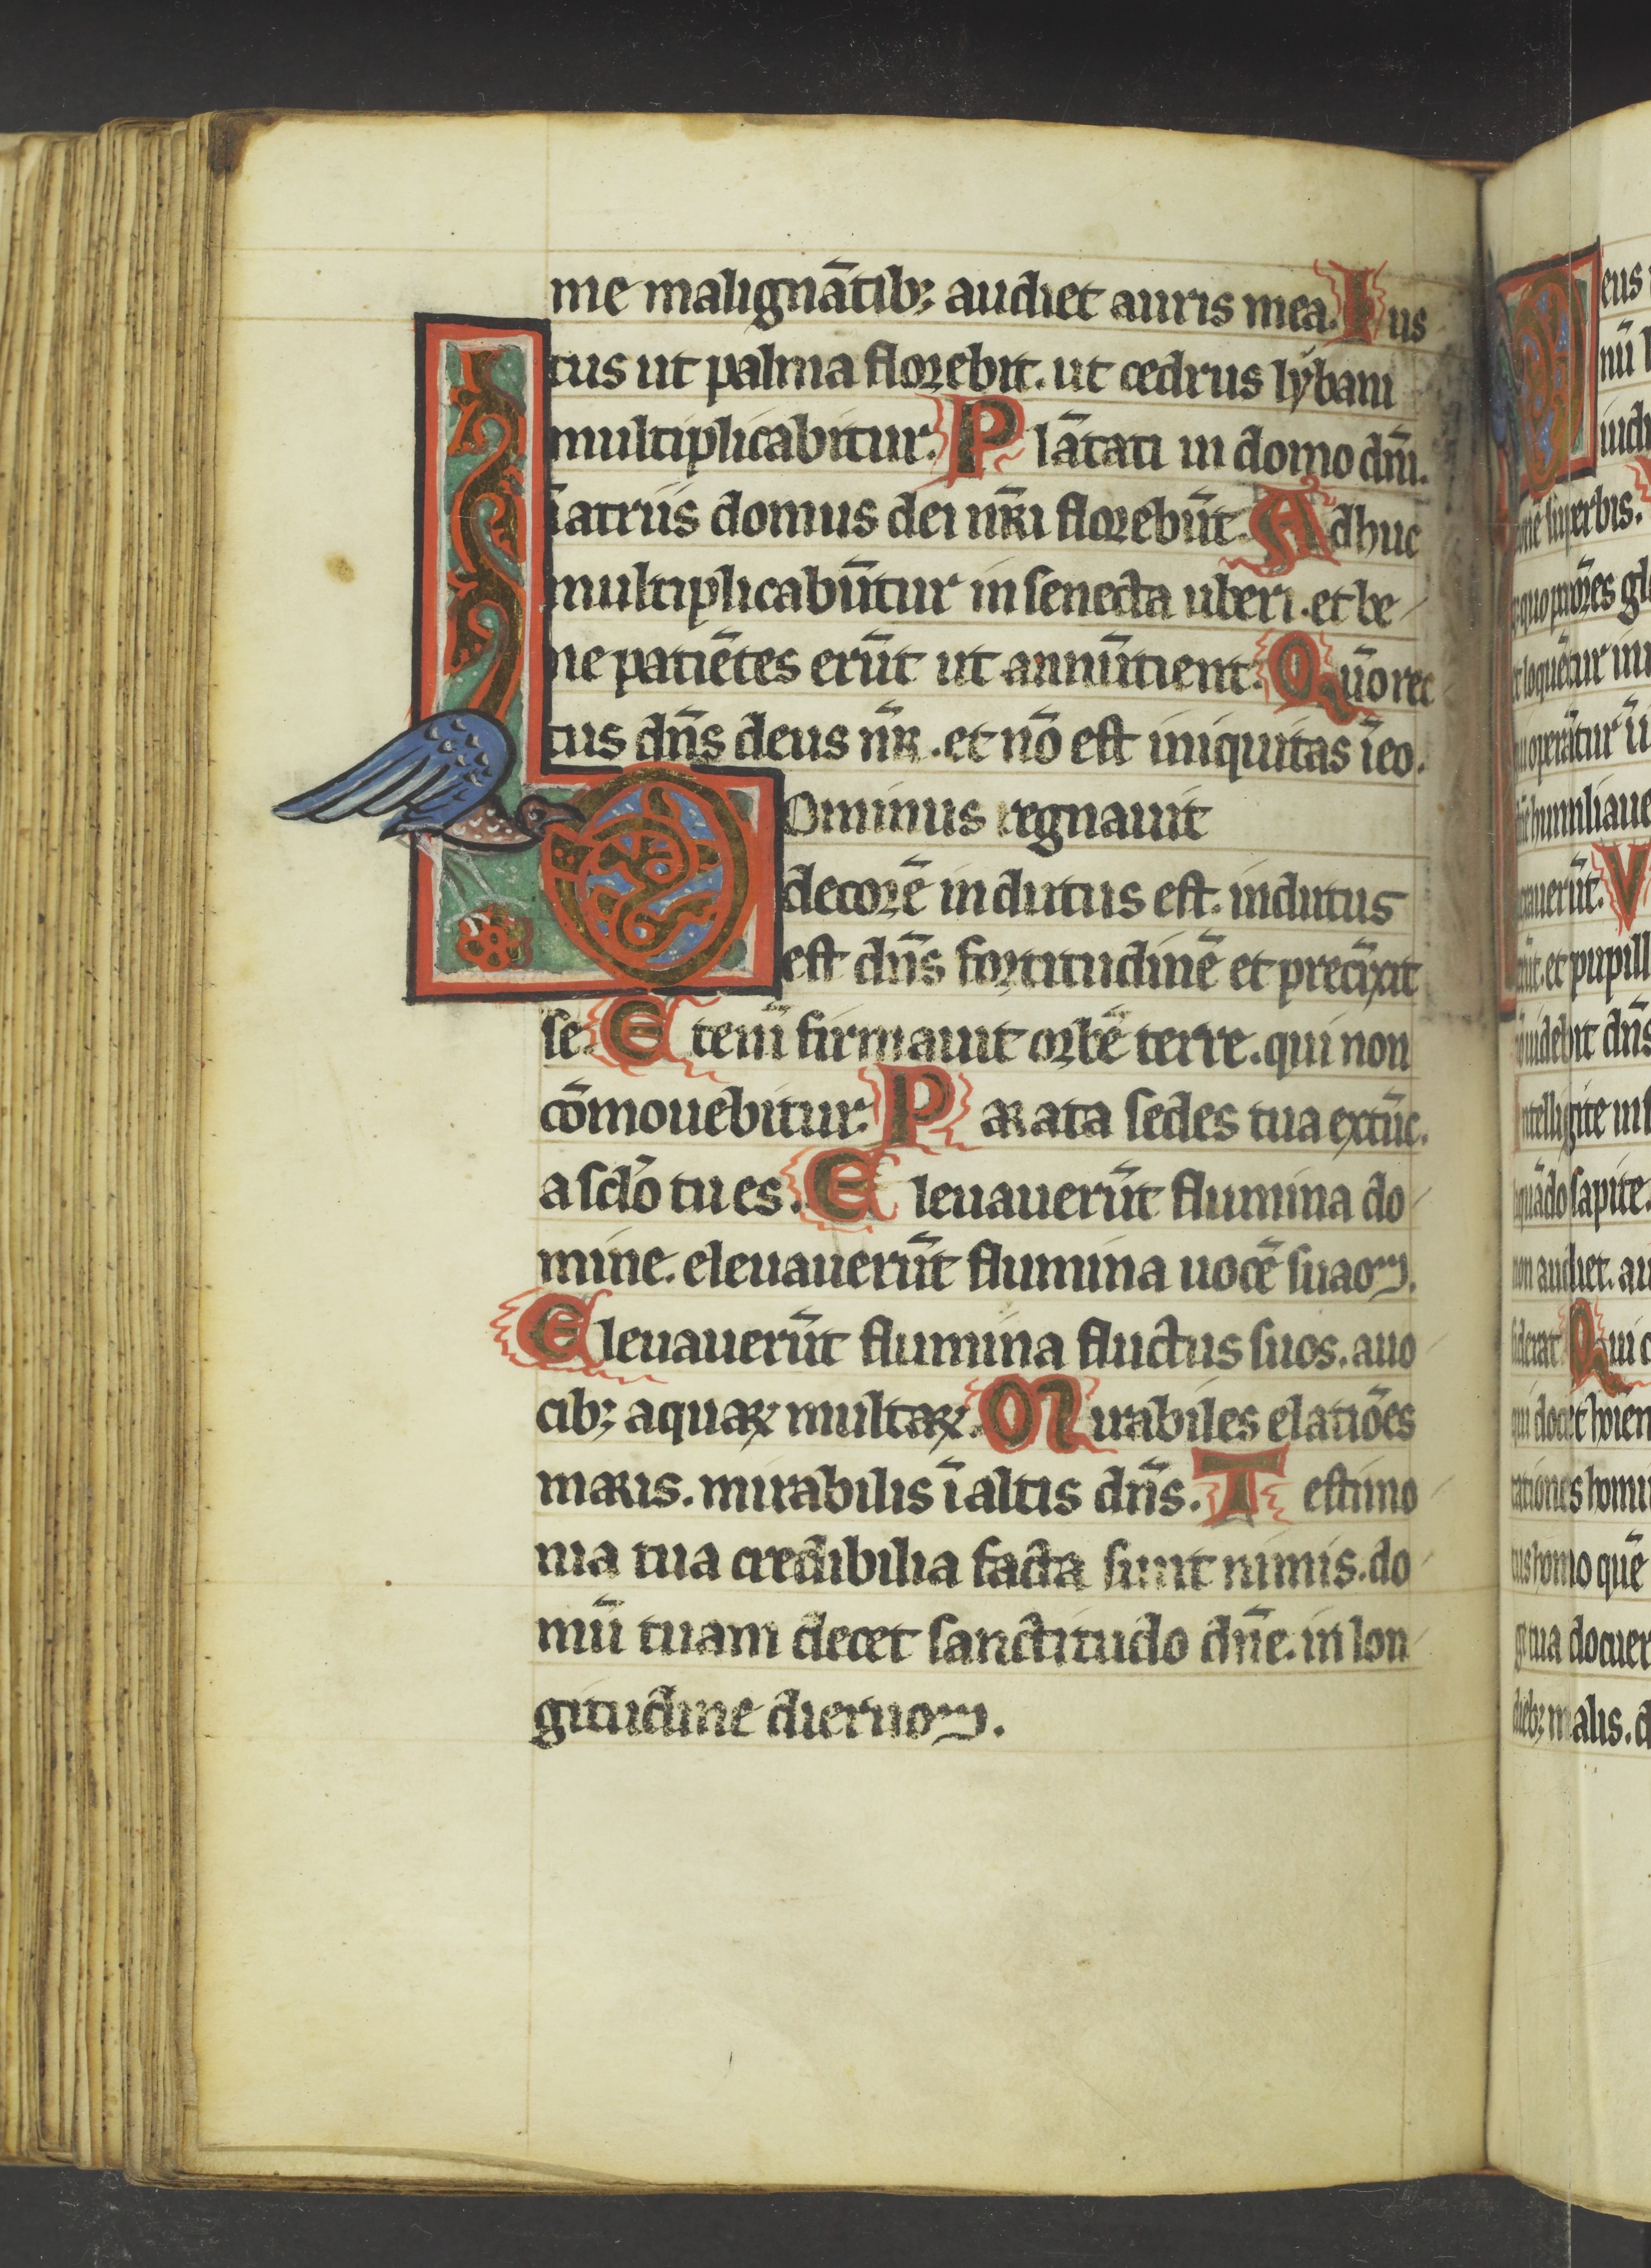 me malignātib; audiet auris mea. Ius
tus ut palma florebit. ut cedrus lybani
multiplicabitur. Plātati in domo dn̄i.
ī atriis domus dei nr̄i florebūt. Adhuc
multiplicabūtur in senecta uberi. et be
ne patiētes erūt ut annūtient. Qūo rec
tus dn̄s deus nr̄. et nō est iniquitas ī eo.
Dominus regnauit
decorē indutus est. indutus
est dn̄s fortitudinē et precīxit
se. Etenī firmauit orbē terre. qui non
cōmouebitur. Parata sedes tua ex tūc.
a sclo̅ tu es. Eleuauerūt flumina do
mine. eleuauerūt flumina uocē suaꝫ.
Eleuauerūt flumina fluctus suos. a uo
cib; aquaꝝ multaꝝ. Mirabiles elatiōes
maris. mirabilis ī altis dn̄s. Testimo
nia tua credibilia facta sunt nimis. do
mū tuam decet sanctitudo dn̄e. in lon
gitudine dieruꝫ.
eus
nū
iudi
superbis.
quo
dn̄s
sapite.
non audiet. au
Qui c
qui docet
tationes homi
homo quē
tua docuer
dieb; malis. d